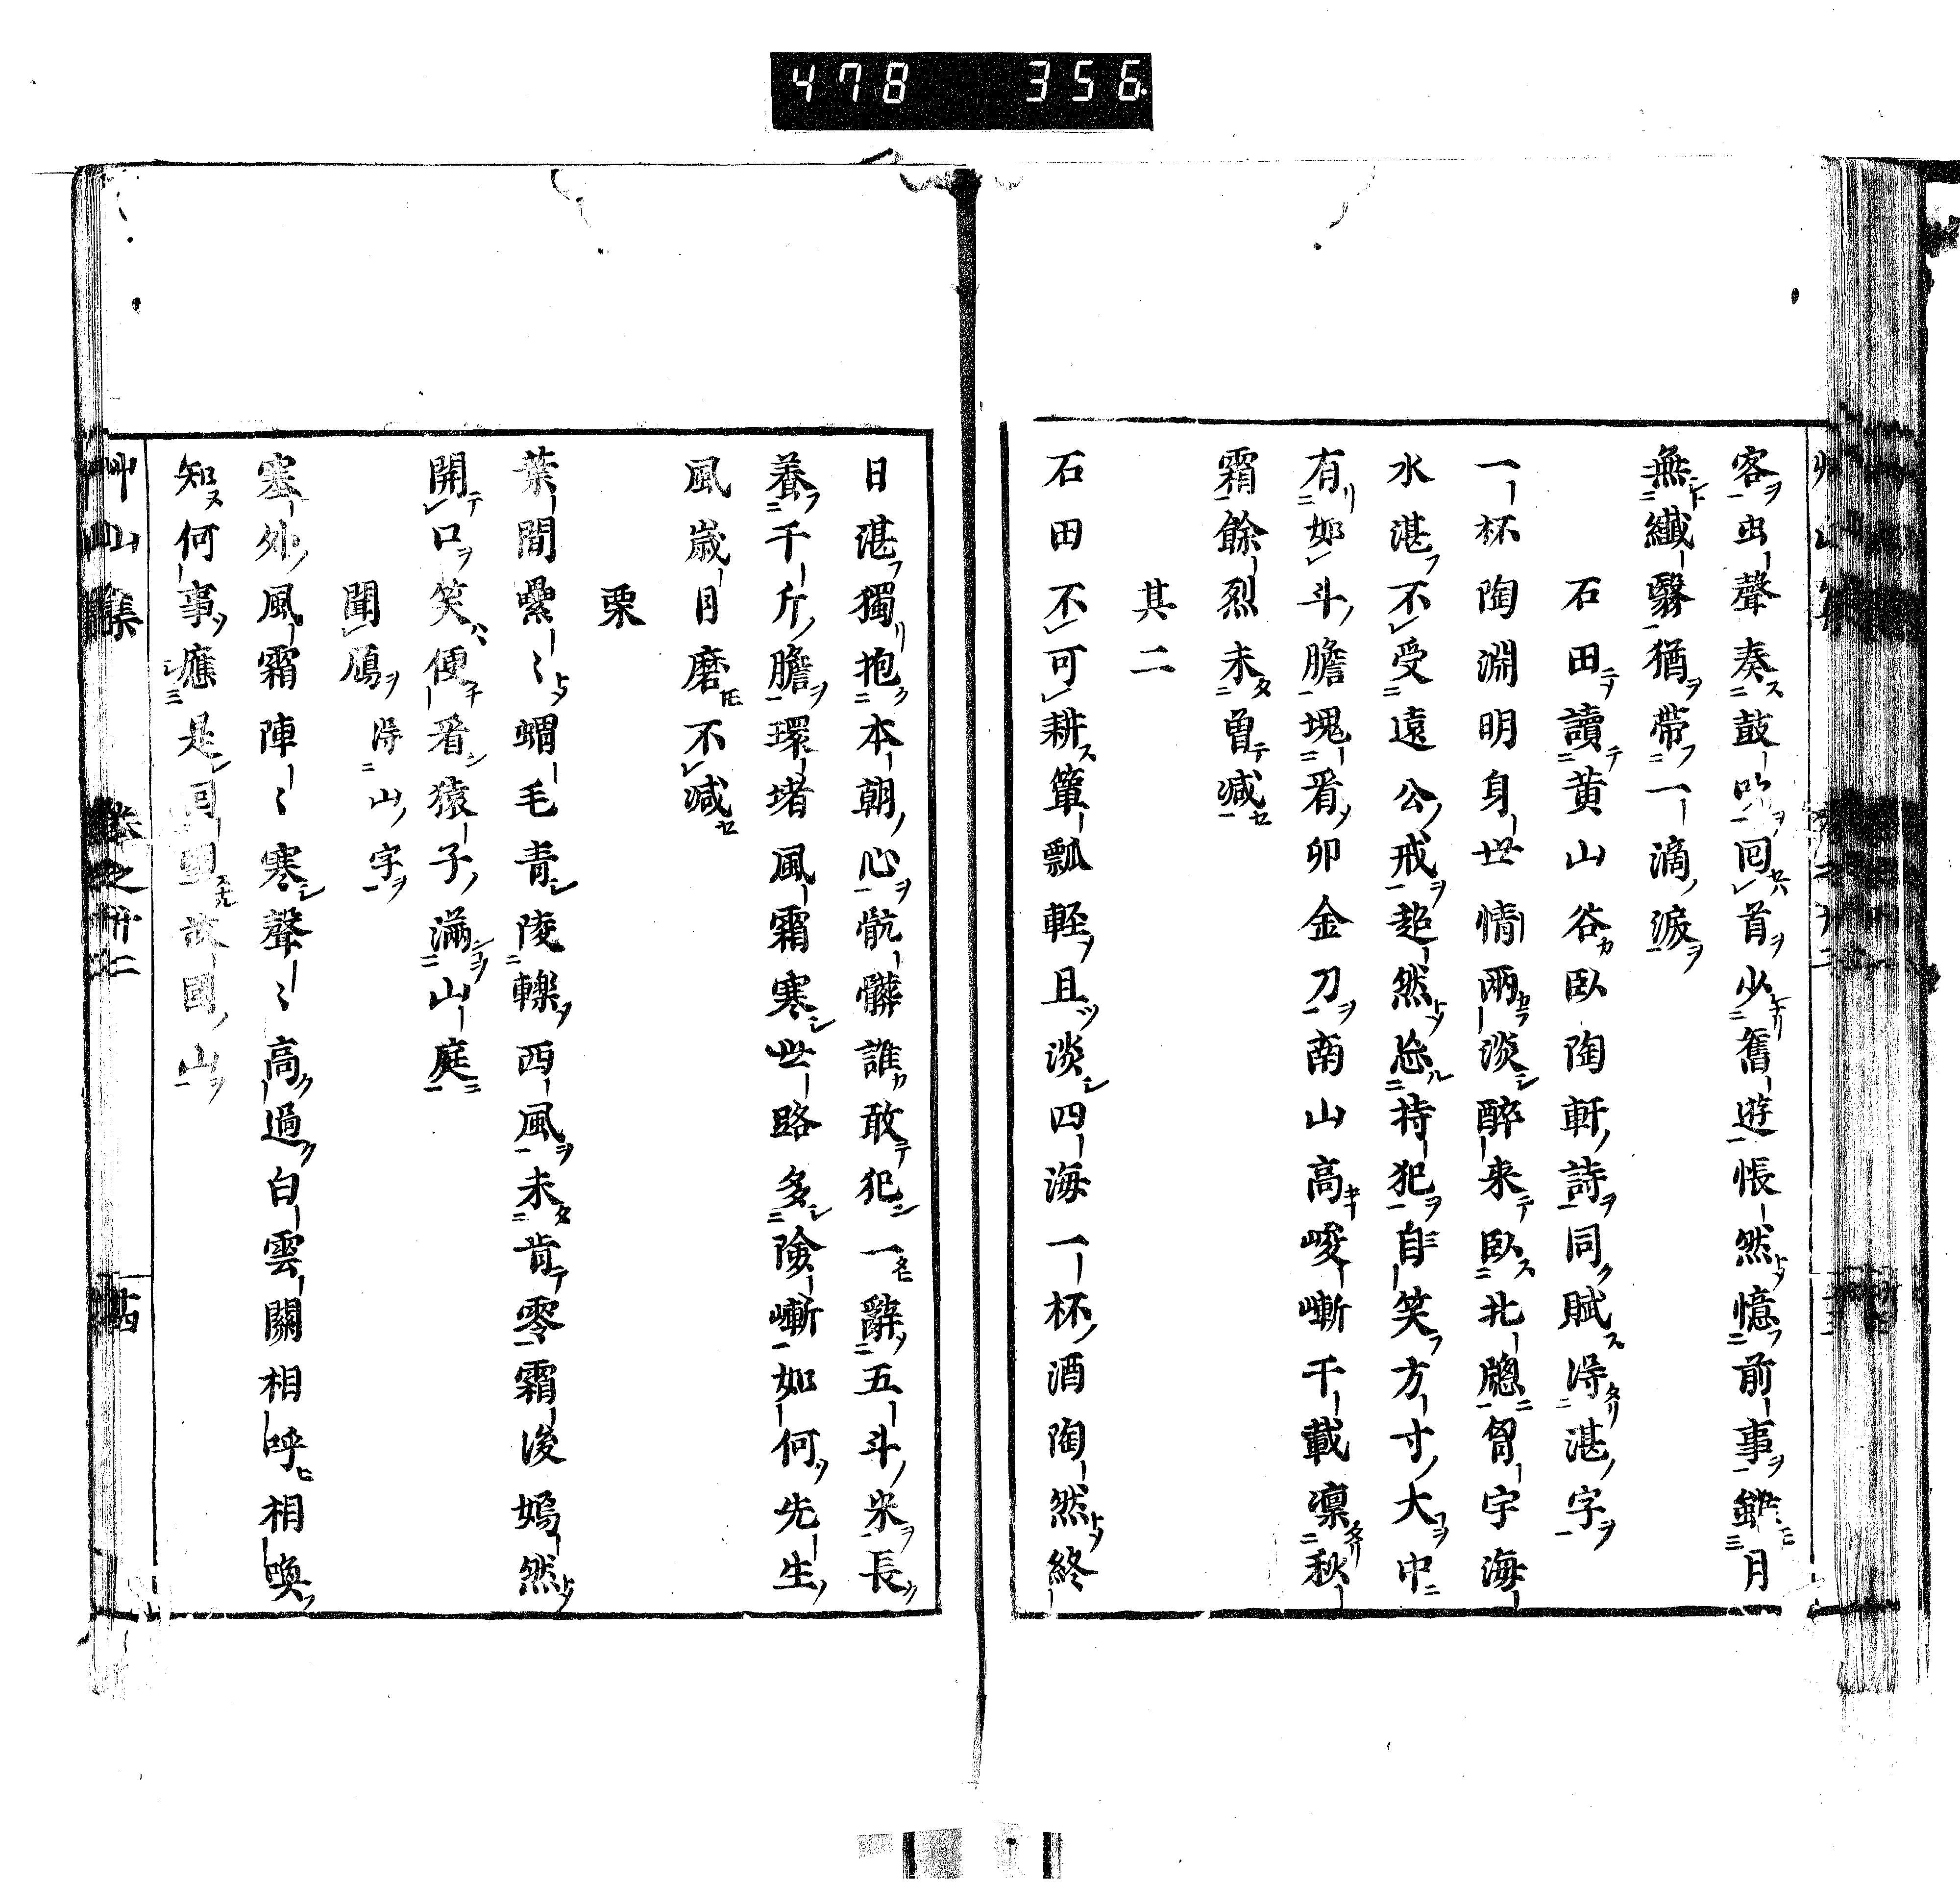 478 356
客虫聲奏鼓吹回首少舊遊悵然憶前事雖月
無纖翳猶帶一滴淚
石田讀黄山谷臥陶軒詩同賦得湛字
一杯陶淵明身世情兩淡醉来臥北牎胷宇海
水湛不受遠公戒超然忘持犯自笑方寸大中
有如斗膽塊看卯金刀南山高峻嶃千載凛秋
霜餘烈未曽減
其二
石田不可耕簞瓢軽且淡四海一杯酒陶然終
日湛獨抱本朝心骯髒誰敢犯一辭五斗米長
養千斤膽環堵風霜寒世路多險嶃如何先生
風歳月磨不減
栗
葉間纍〻蝟毛青陵轢西風未肯零霜後嫣然
開口笑便看猿子滿山庭
聞鴈 得山字
塞外風霜陣〻寒聲〻高過白雲關相呼相喚
知何事應是回頭故國山
艸山集 卷之廿二 十四